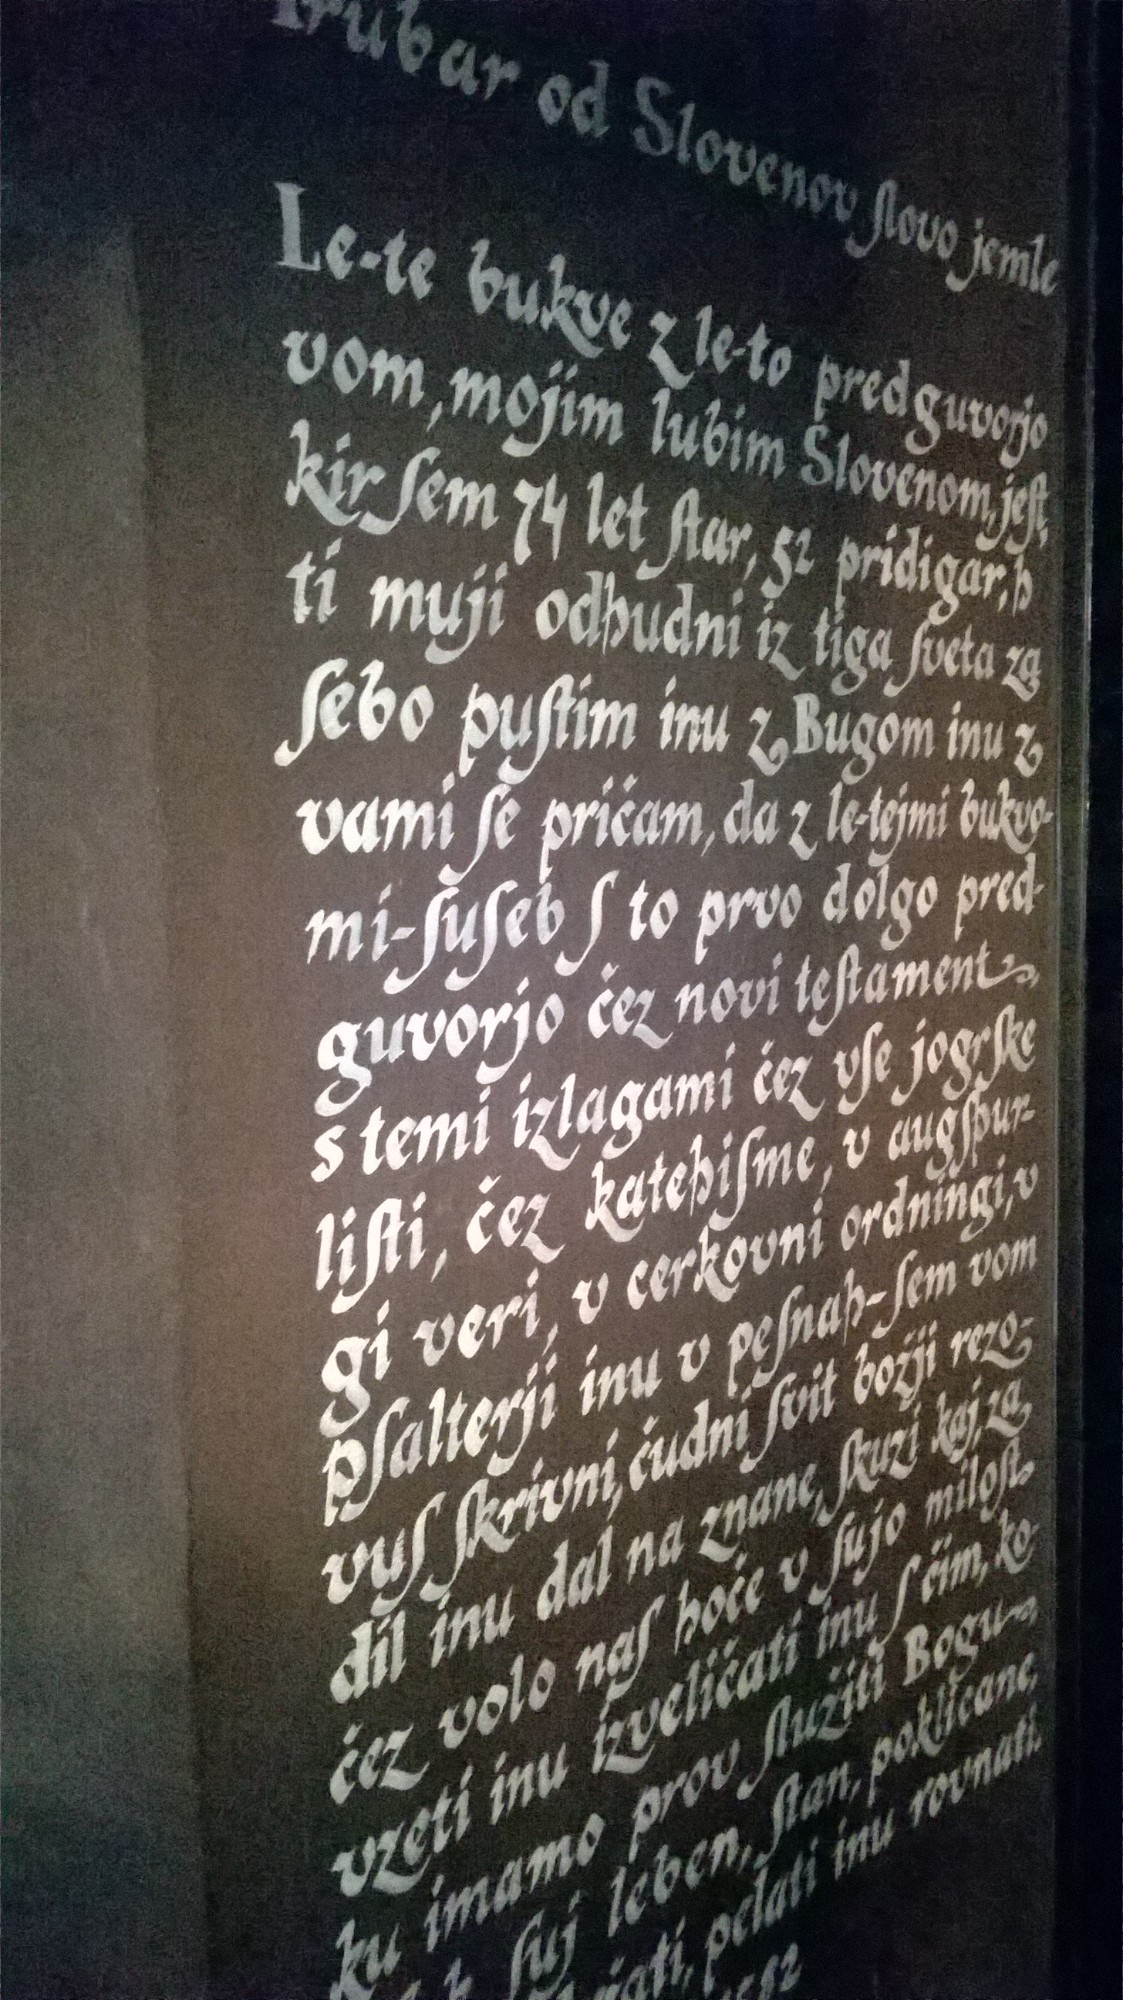 Trubar od Slovenov ſlovo jemle
Le-te bukve z le-to predguvorjo
vom, mojim lubim Slovenom, jeſt,
kir ſem 74 let ſtar, 52 pridigar, h
ti muji odhudni iz tiga ſveta za
ſebo puſtim inu z Bugom inu z
vami ſe pričam, da z le-tejmi bukvo-
mi-ſuſeb ſ to prvo dolgo pred-
guvorjo čez novi teſtament
s temi izlagami čez vſe jogrſke
liſti, čez katehiſme, v augſpur-
gi veri, v cerkovni ordningi, v
pſalterji inu v peſnah-ſem vom
vuſ ſkrivni, čudni ſvit božji rezo-
dil inu dal na znane, ſkuzi kaj, za
čez volo naſ hoče v ſujo miloſt
vzeti inu izveličati inu ſ čim, ko
ku imamo prov ſlužiti Bogu
ſuj leben, ſtan, poklicane,
pelati inu rovnati.